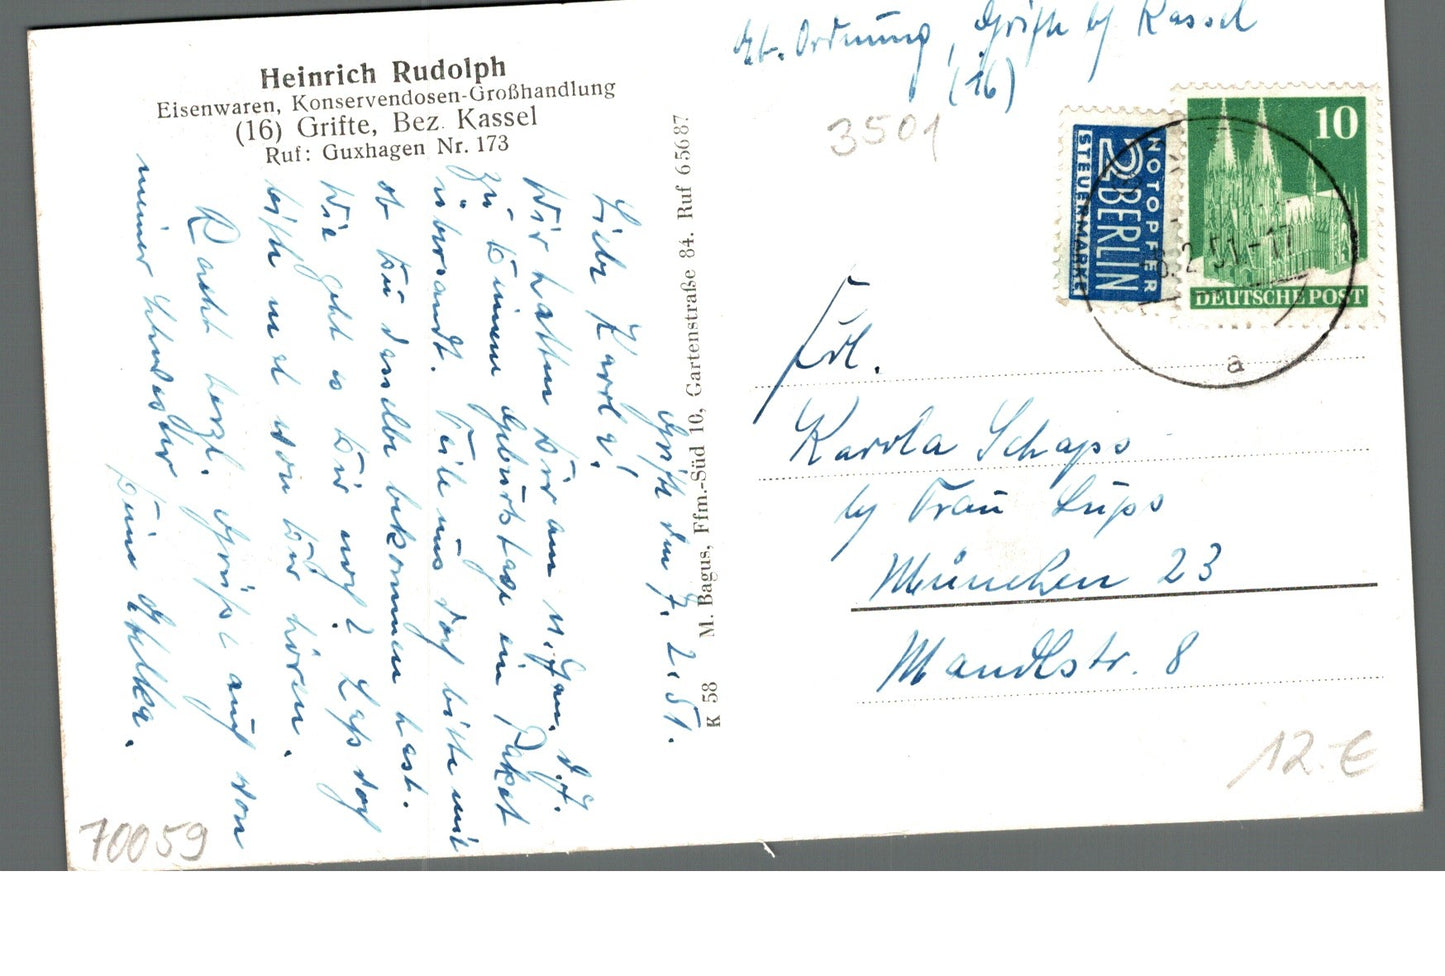 Heinrich Rudolph
Eisenwaren, Konservendosen-Großhandlung
(16) Grifte, Bez. Kassel
Ruf: Guxhagen Nr. 173
Grifte den 7.2.51.
Liebe Karola!
Wir hatten Dir am 11. Jan. d. J.
zu Deinem Geburtstage ein Paket
übersandt. Teile uns doch bitte mit
ob Du dasselbe bekommen hast.
Wie geht es Dir noch? Lass doch
bitte mal von Dir hören.
Recht herzl. Grüße auch von
meiner Schwester Deine
K 58 M. Bagus, Ffm.-Süd 10, Gartenstraße 84. Ruf 65687
Ordnung, Grifte b/ Kassel
(16)
3501
NOTOPFER
2 BERLIN
STEUERMARKE
10
DEUTSCHE POST
2.51.-17
a
Frl.
Karola Schaps
b/ Frau Lups
München 23
Mandlstr. 8
12.-€
70059